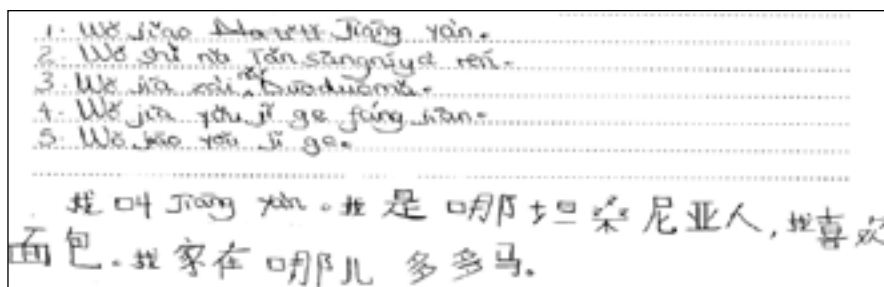 1. Wǒ jiào Jiāng yàn.
2. Wǒ shì nǎ Tǎn sāngníyà rén.
3. Wǒ jiā zài nǎr Duōduōmǎ.
4. Wǒ jiā yǒu jǐ ge fáng jiān.
5. Wǒ yǒu jǐ ge.
我叫 Jiāng yàn。我是哪坦桑尼亚人,我喜欢
面包。我家在哪儿多多马。